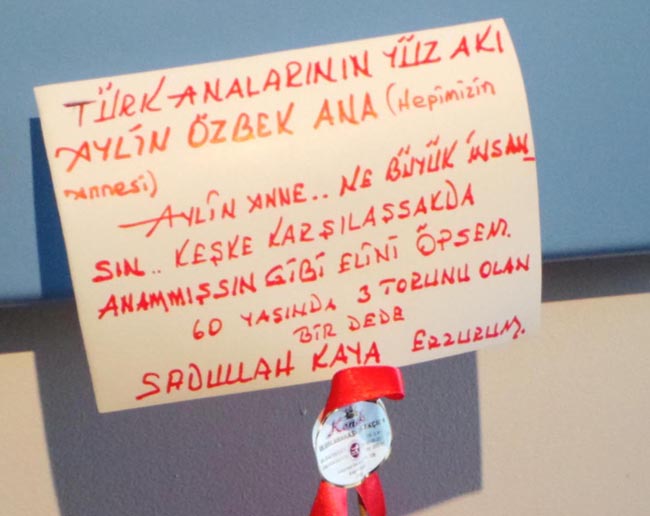 TÜRK ANALARININ YÜZ AKI
AYLİN ÖZBEK ANA (Hepimizin
annesi)
AYLİN ANNE.. NE BÜYÜK İNSAN
SIN.. KEŞKE KARŞILAŞSAKDA
ANAMMIŞSIN GİBİ ELİNİ ÖPSEM.
60 YAŞINDA 3 TORUNU OLAN
BİR DEDE
SADULLAH KAYA ERZURUM.